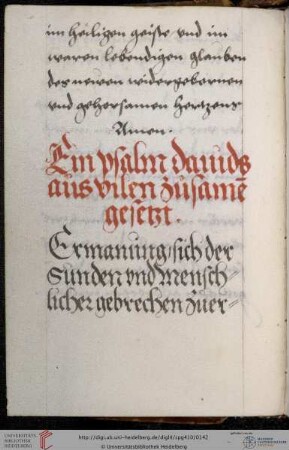 im heiligen geiste vnd im
waren lebendigen glauben
des newen widergebornen
vnd gehorsamen hertzens
Amen.
Ein psalm dauids
aus vilen zusamē
gesetzt.
Ermanung sich der
Sunden vnd mensch-
licher gebrechen zuer-
UNIVERSITÄTS-
BIBLIOTHEK
HEIDELBERG
http://digi.ub.uni-heidelberg.de/diglit/cpg410/0142
© Universitätsbibliothek Heidelberg